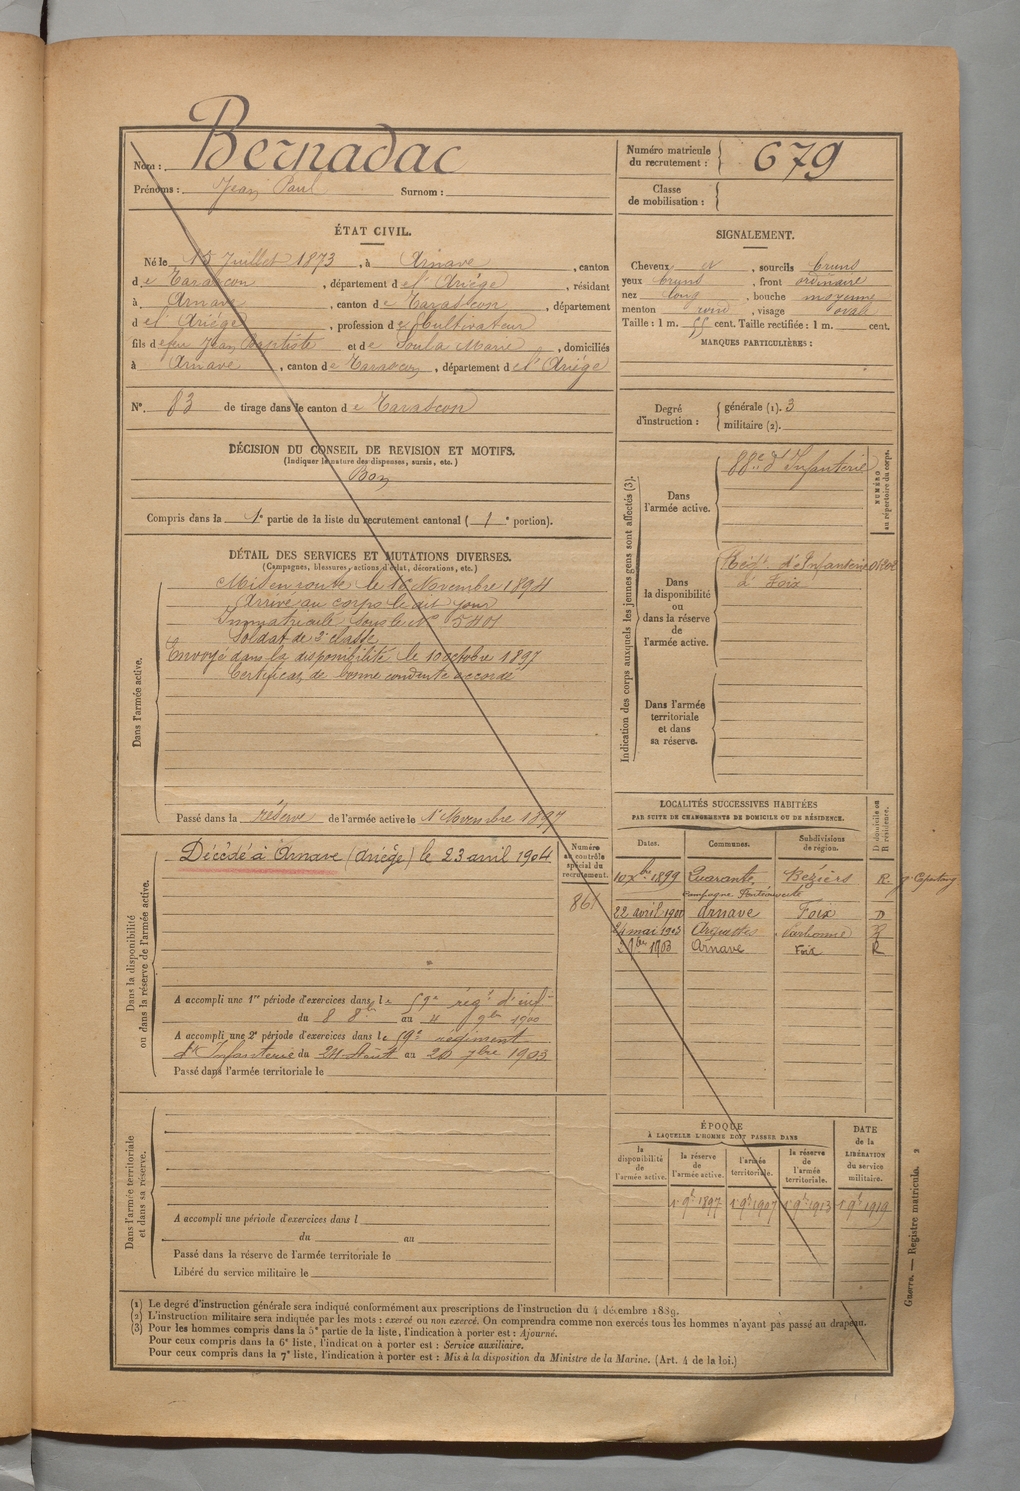 Nom : Bernadac
Prénoms : Jean Paul Surnom :
Numéro matricule du recrutement : 679
Classe de mobilisation :
ÉTAT CIVIL.
Né le 15 Juillet 1873, à Arnave, canton
de Tarascon, département de l'Ariège, résidant
à Arnave, canton de Tarascon, département
de l'Ariège, profession de Cultivateur
fils de feu Jean Baptiste et de Soula Marie, domiciliés
à Arnave, canton de Tarascon, département de l'Ariège
N° 83 de tirage dans le canton de Tarascon
SIGNALEMENT.
Cheveux et, sourcils bruns
yeux bruns, front ordinaire
nez long, bouche moyenne
menton rond, visage oval
Taille : 1 m. 55 cent. Taille rectifiée : 1 m. cent.
MARQUES PARTICULIÈRES :
Degré d'instruction : générale (1). 3
militaire (2).
DÉCISION DU CONSEIL DE REVISION ET MOTIFS.
(Indiquer la nature des dispenses, sursis, etc.)
Bon
Compris dans la 1e partie de la liste du recrutement cantonal (1e portion).
DÉTAIL DES SERVICES ET MUTATIONS DIVERSES.
(Campagnes, blessures, actions d'éclat, décorations, etc.)
Dans l'armée active.
Mis en route le 16 Novembre 1894
Arrivé au corps le dit jour
Immatriculé sous le N°
Soldat de 2e classe
Envoyé dans la disponibilité le 10 octobre 1897
Certificat de bonne conduite accordé
Passé dans la réserve de l'armée active le 1er Novembre 1897
Indication des corps auxquels les jeunes gens sont affectés (3).
NUMÉRO au répertoire du corps.
Dans l'armée active.
88e d'Infanterie
Dans la disponibilité ou dans la réserve de l'armée active.
Régt d'Infanterie
à Foix
Dans l'armée territoriale et dans sa réserve.
Dans la disponibilité ou dans la réserve de l'armée active.
Numéro au contrôle spécial du recrutement.
861
Décédé à Arnave (Ariège) le 23 avril 1904
A accompli une 1re période d'exercices dans le 59e régt d'inf
du 8 8bre au 4 9bre 1900
A accompli une 2e période d'exercices dans le 59e régiment
d'Infanterie du 24 Août au 20 7bre 1903
Passé dans l'armée territoriale le
LOCALITÉS SUCCESSIVES HABITÉES
PAR SUITE DE CHANGEMENTS DE DOMICILE OU DE RÉSIDENCE.
D domicile ou R résidence.
Dates. Communes. Subdivisions de région.
10 Xbre 1899 Quarante, Béziers R.
campagne
22 avril 1900 Arnave Foix D
mai 1903 Narbonne R
9bre 1903 Arnave Foix R
ÉPOQUE
À LAQUELLE L'HOMME DOIT PASSER DANS
la disponibilité de l'armée active.
la réserve de l'armée active.
l'armée territoriale.
la réserve de l'armée territoriale.
DATE de la LIBÉRATION du service militaire.
1er 9bre 1897 1er 9bre 1907 1er 9bre 1913 1er 9bre 1919
Dans l'armée territoriale et dans sa réserve.
A accompli une période d'exercices dans l
du au
Passé dans la réserve de l'armée territoriale le
Libéré du service militaire le
(1) Le degré d'instruction générale sera indiqué conformément aux prescriptions de l'instruction du 4 décembre 1889.
(2) L'instruction militaire sera indiquée par les mots : exercé ou non exercé. On comprendra comme non exercés tous les hommes n'ayant pas passé au drapeau.
(3) Pour les hommes compris dans la 5e partie de la liste, l'indication à porter est : Ajourné.
Pour ceux compris dans la 6e liste, l'indication à porter est : Service auxiliaire.
Pour ceux compris dans la 7e liste, l'indication à porter est : Mis à la disposition du Ministre de la Marine. (Art. 4 de la loi.)
Guerre. — Registre matricule. 2